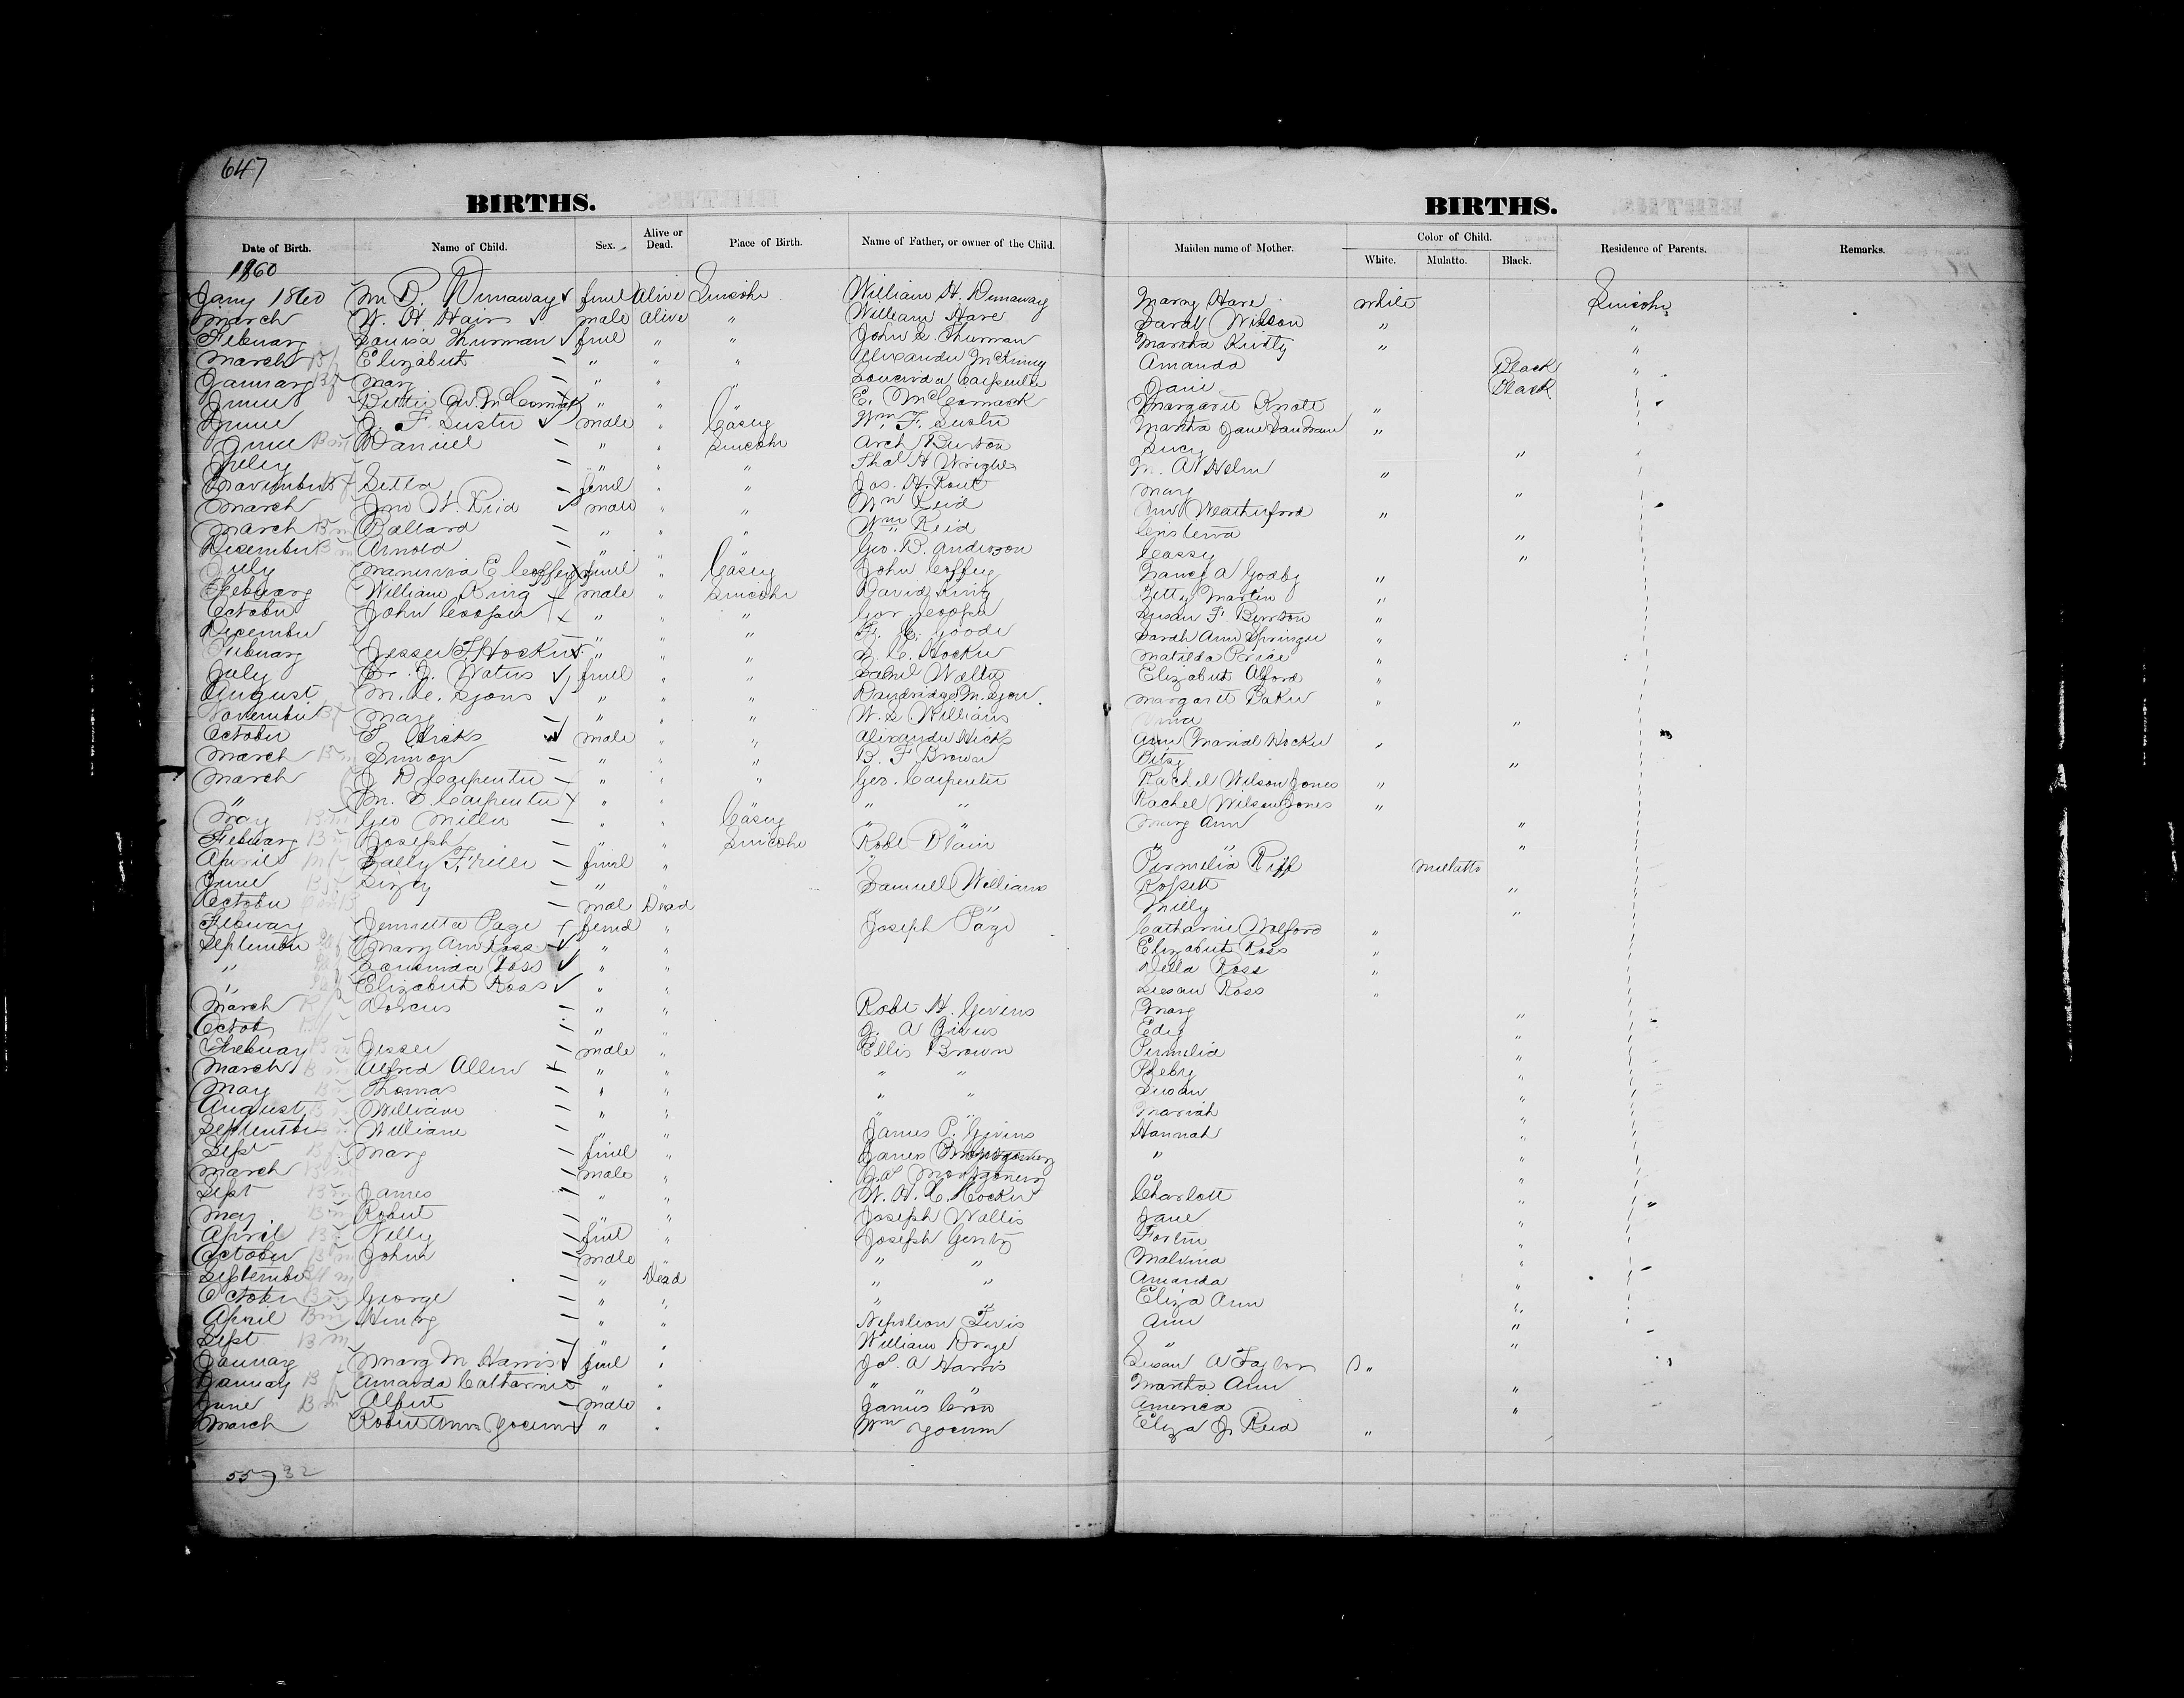 647
BIRTHS. BIRTHS.
Date of Birth. Name of Child. Sex. Alive or Dead. Place of Birth. Name of Father, or owner of the Child. Maiden name of Mother. Color of Child. White. Mulatto. Black. Residence of Parents. Remarks.
1860
Jany 1860 M D. Dunaway feml Alive Lincoln William H. Dunaway Mary Hare white Lincoln
March W. H Hair male alive " William Hare Sarah Wilson " "
Febuary Louisa Thurman feml " " John Thurman Martha " "
March Bf Elizabeth " " " Alexander McKinny Amanda Black "
January Bf Mary " " " Loucinda Carpenter Jane Black
June McCormack " " " E. McCormack Margaret Knott "
June J. F. Luster male " Casey Wm F. Luster Martha Jane "
June Bm Daniel " " Lincoln Arch Burton Lucy "
July " " " Thos H Wright M. A Helm "
November Bf feml " " Jos. H. Rout Mary "
March Jno W. Reid male " " Wm Reid Weatherford "
March Bm Ballard " " " Wm Reid "
December Bm Arnold " " " Geo. D. Anderson Cassy "
July Manerva E Coffey feml " Casey John Coffey Nancy A Godby "
Febuary William King male " Lincoln David King Martin "
October John Cooper " " " Geo Cooper Susan F. Burton "
December " " " Goode Sarah Ann Springer "
Febuary Jesse F. Hocker " " " Hocker Matilda Price "
July Waters feml " " Elizabeth Alford "
August M. Lyons " " " Dandridge M. Lyon Margarett Baker "
November Bf Mary " " " W. S. Williams "
October F Hicks male " " Alexander Hicks Ann Mariah Hocker "
March Bm Simon " " " B. F Brown Bitsy "
March J D Carpenter " " " Geo. Carpenter Rachel Wilson Jones "
" M. D. Carpenter " " " " Rachel Wilson Jones "
May Bm Geo Miller " " Casey " " Mary Ann "
Febuary Bm Joseph " " Lincoln Robt Blain " " "
April Mf Sally feml " " Permelia Riff Mullatto
June Bf Lizzy " " Samuell Williams "
October mal Dead " " Milly "
Febuary Page femd " Joseph Page Catharine Wolford "
September Mary Ann Ross " " Elizabeth Ross "
" Loucinda Ross " " Della Ross "
" Elizabeth Ross " " Susan Ross "
March Bf Dorcus " " Robt H. Givens Mary "
Octob " " G. A Givens Edy "
Febuary Bm Jesse male " Ellis Brown Permelia "
March Bm Alfred Allen " " " " Phebry "
May Bm Thomas " " " " Susan "
August Bm William " " " " Mariah "
September William " " James P. Givens Hannah "
Sept Bf Mary feml " James Montgomery " "
March male " Montgomery " "
Sept Bm James " " W. H. C. Hocker Charlott "
May Bm Robert " " Joseph Wallis Jane "
April Bf feml " Joseph Gentry "
October Bm John male " " " Malvina "
September " Dead " " Amanda "
October Bm George " " " " Eliza Ann "
April Bm Henry " " Nepoleon Tevis Ann "
Sept Bm " " William " "
January Mary M Harris feml " A Harris Susan A Taylor "
January Bf Amanda Catharine " " " " Martha Ann "
June Bm Albert male " James Crow America "
March Yocum " " Wm Yocum Eliza J. Reid "
55 32